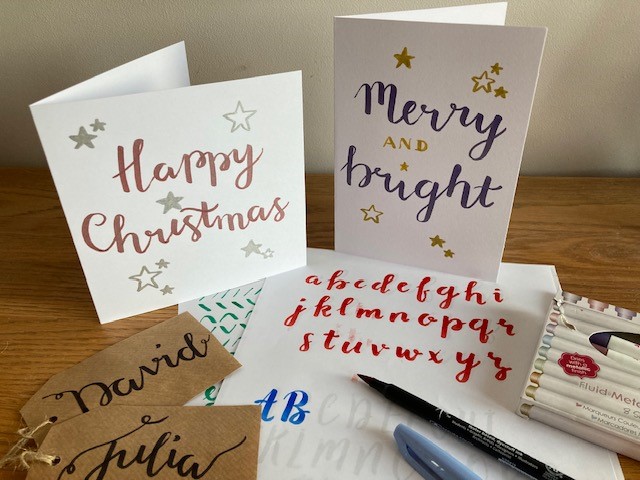 Happy
Christmas
Merry
AND
bright
abcdefghi
jklmnopqr
stuvwxyz
AB
David
Julia
Fluid-Meta